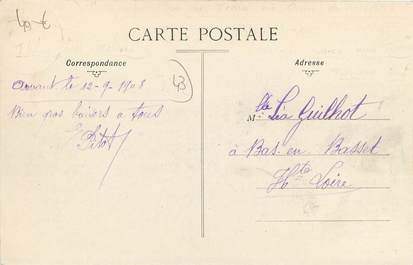 43 €
CARTE POSTALE
Correspondance
Adresse
le 12-9-1908
43
Bien gros baisers a tous
Mlle Lia Guilhot
à Bas. en. Basset
Hte Loire